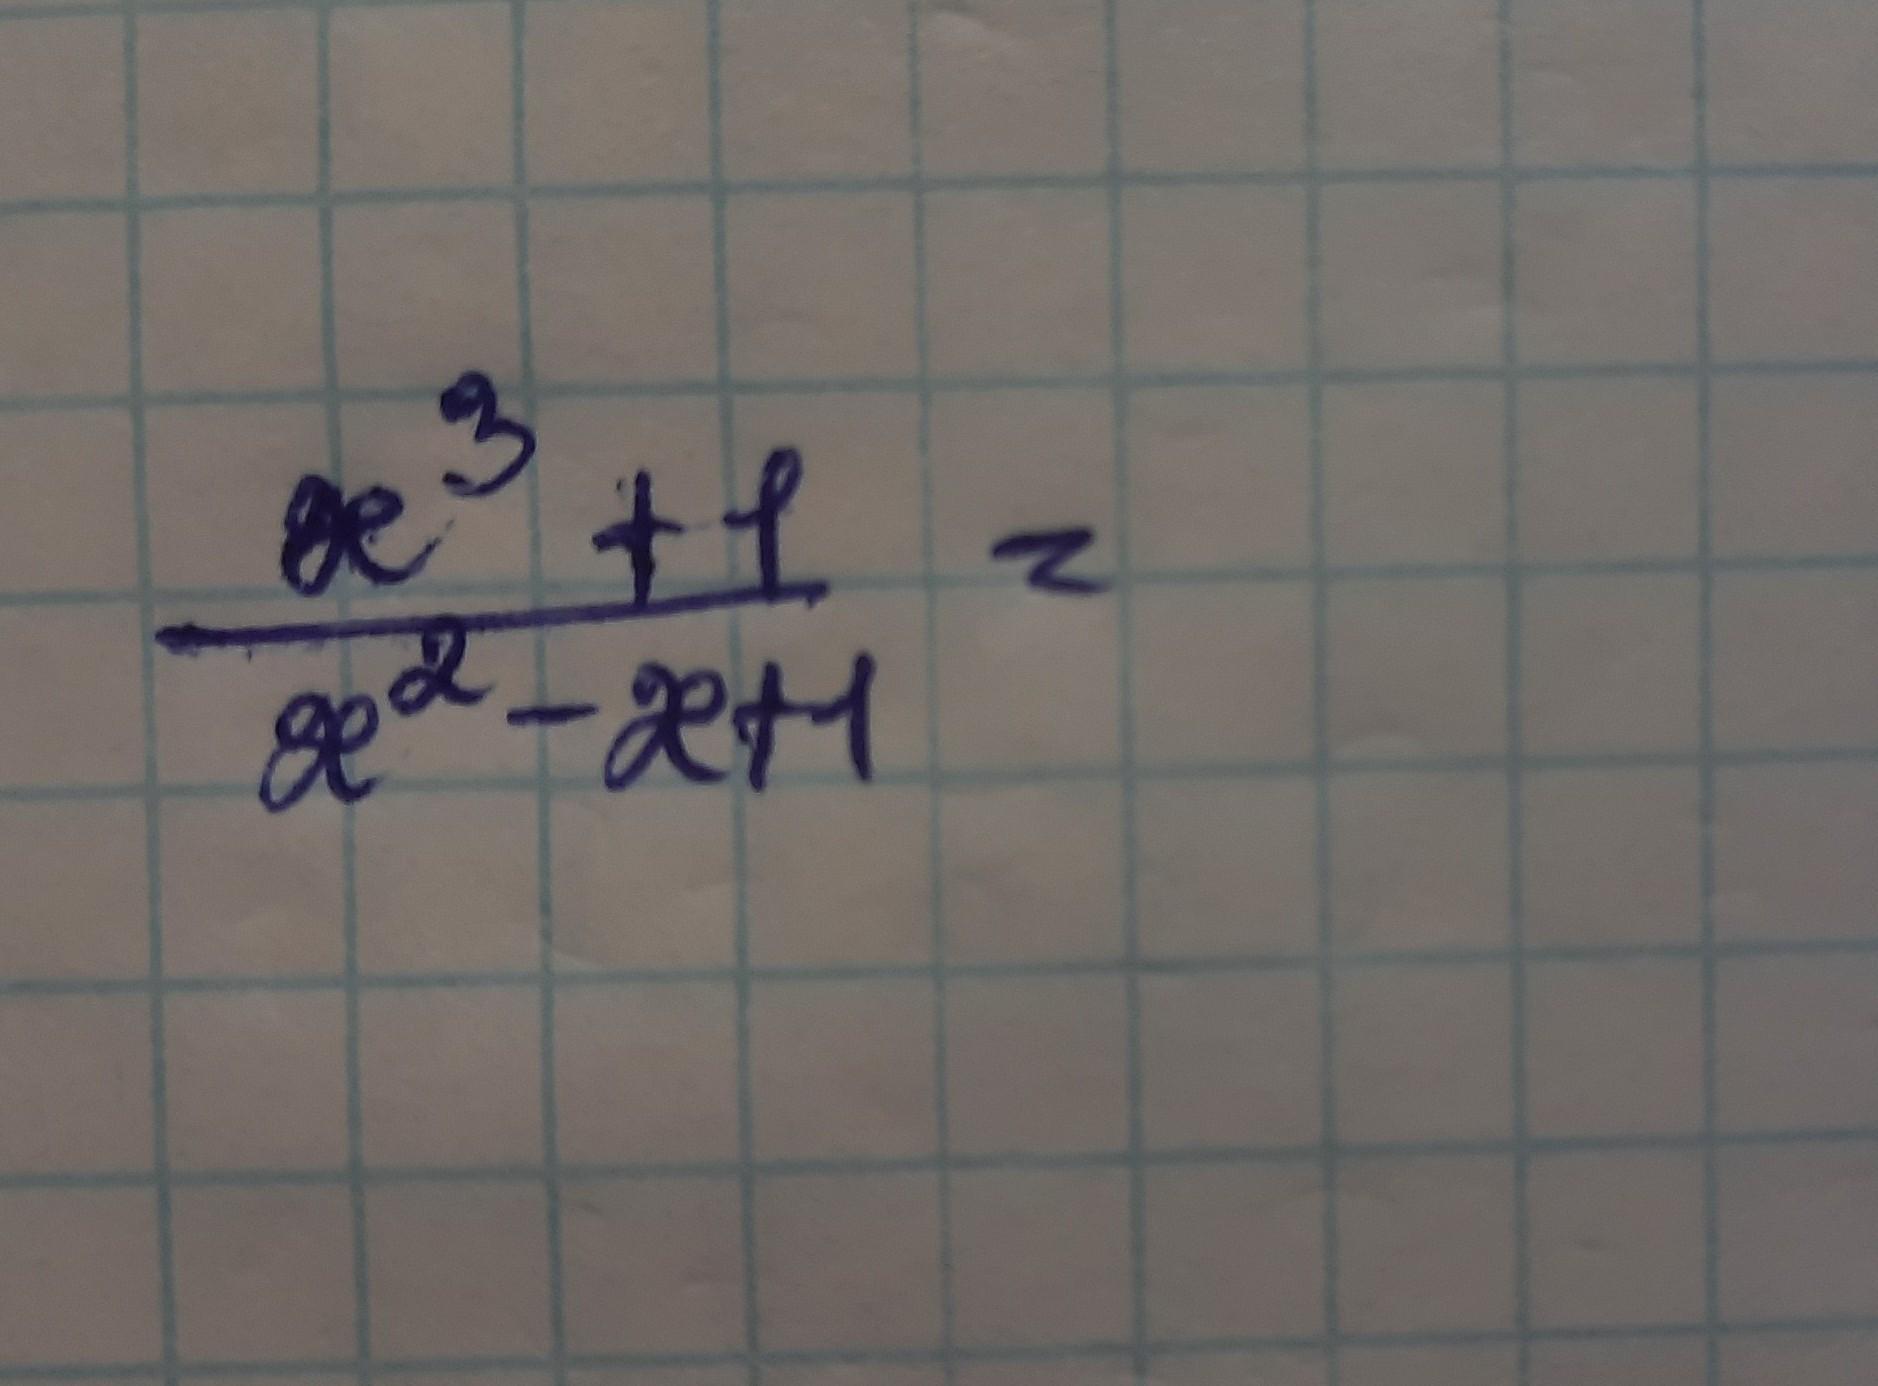 x³ + 1 =
x² - x + 1